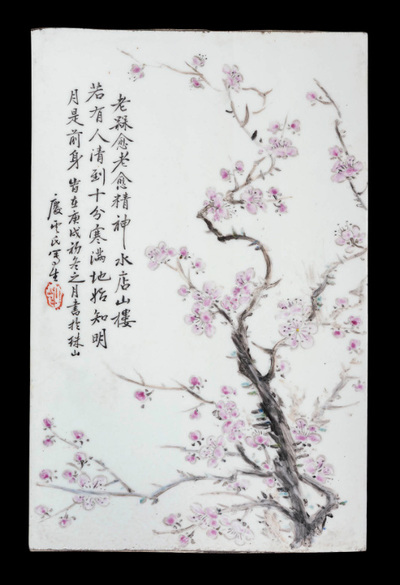 老愈老愈精神水店山樓
若有人清到十分寒滿地始知明
月是前身 旹在庚戌初冬之月書於珠山
慶云氏寫生